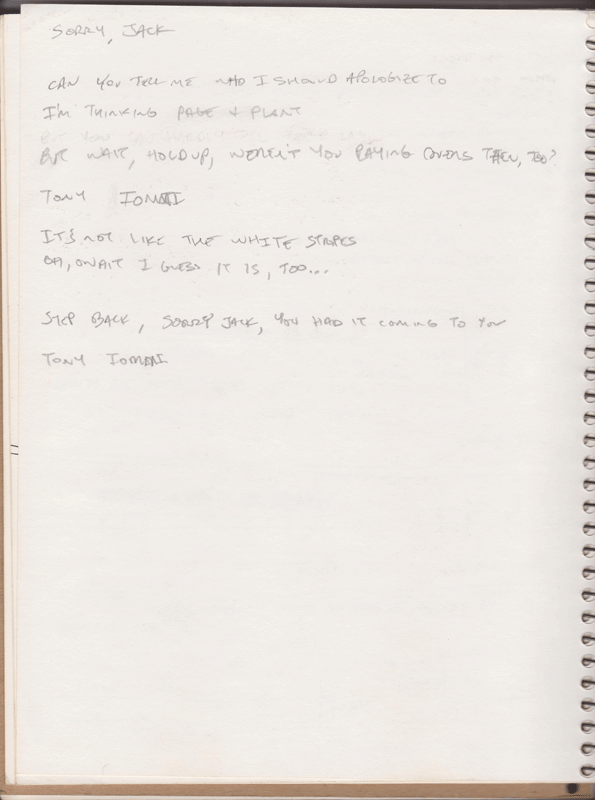 SORRY, JACK
CAN YOU TELL ME WHO I SHOULD APOLOGIZE TO
I'M THINKING PAGE & PLANT
BUT WAIT, HOLD UP, WEREN'T YOU PLAYING COVERS THEN, TOO?
TONY IOMMI
IT'S NOT LIKE THE WHITE STRIPES
OH, WAIT I GUESS IT IS, TOO...
STEP BACK, SORRY JACK, YOU HAD IT COMING TO YOU
TONY IOMMI